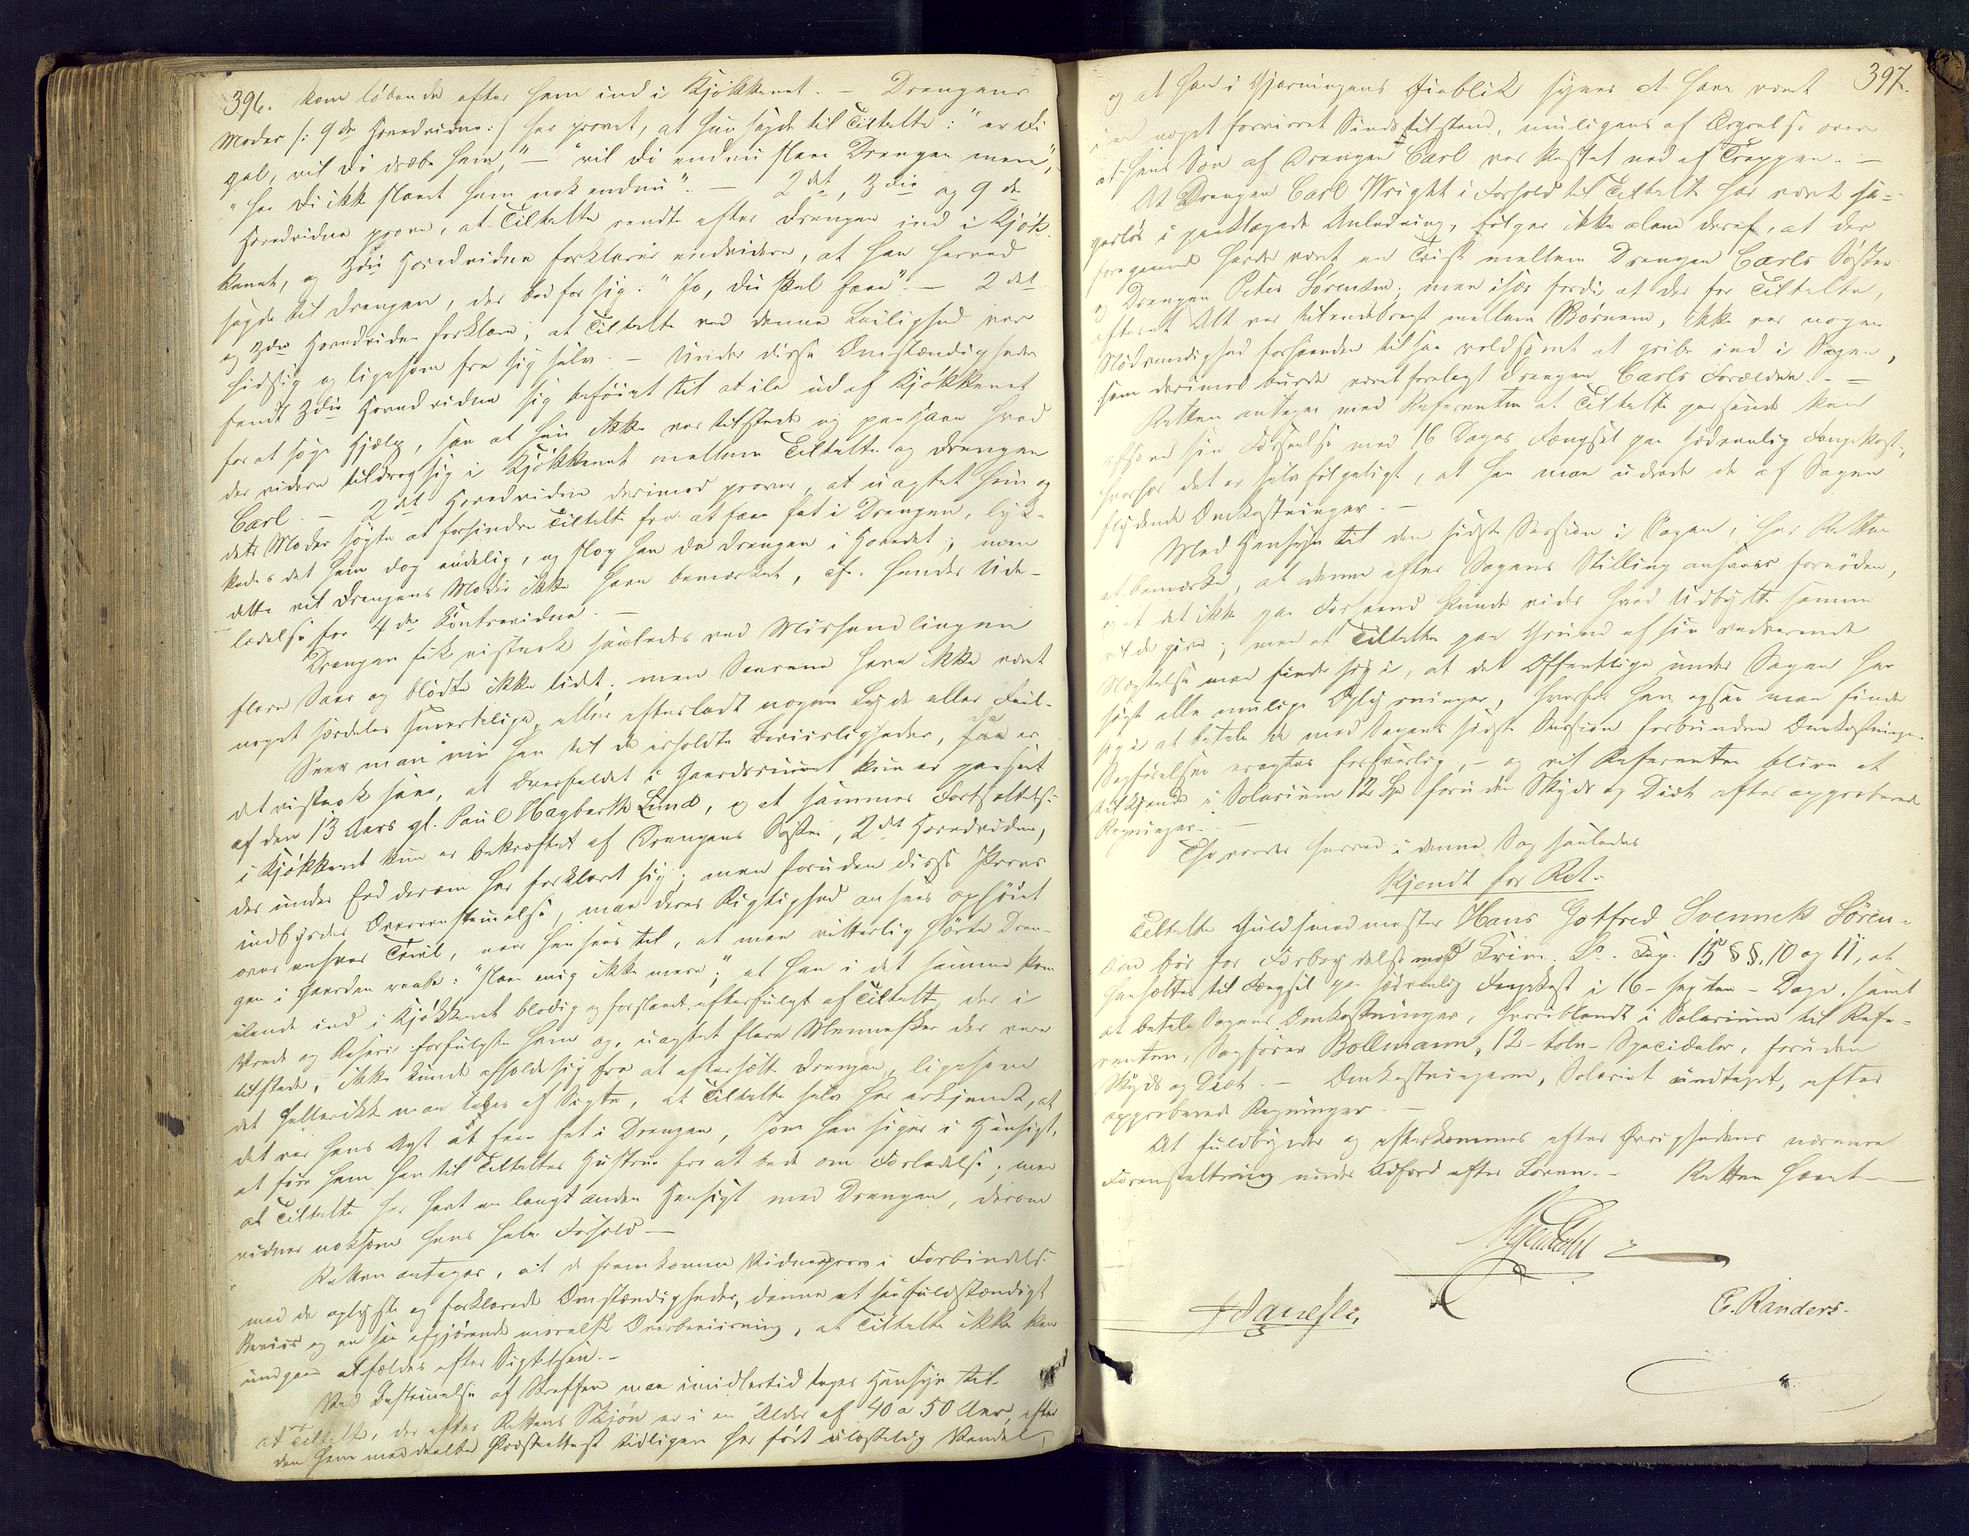 396. kom løbende efter ham ind i Kjøkkenet. – Drengens
Moder /: 9de Hovedvidne :/ har provet, at hun sagde til Tiltalte: "er Di
gal, vil Di dræbe ham," – "vil Di endnu slaae Drengen mere",
"har Di ikke slaaet ham nok endnu". – 2det, 3die og 9de
Hovedvidne prove, at Tiltalte rendte efter Drengen ind i Kjøk-
kenet, og 3die Hovedvidne forklarer endvidere, at han herved
sagde til Drengen, der bad for sig: "Jo, Du skal faae". – 2det
og 3die Hovedvidne forklare, at Tiltalte ved denne Leilighed var
hidsig og ligesom fra sig selv. – Under disse Omstændigheder
fandt 3die Hovedvidne sig beføiet til at ile ud af Kjøkkenet
for at søge Hjælp, saa at hun ikke var tilstede og paasaae hvad
der videre tildrog sig i Kjøkkenet mellem Tiltalte og Drengen
Carl. – 2det Hovedvidne derimod prover, at uagtet hun og
dets Moder søgte at forhindre Tiltalte fra at faae fat i Drengen, lyk-
kedes det ham dog endelig, og slog han da Drengen i Hovedet; men
dette vil Drengens Moder ikke have bemærket, cfr. hendes Ude-
ladelse for 4de Contravidne. –
Drengen fik vistnok saaledes ved Mishandlingen
flere Saar og blødte ikke lidet, men Saarene have ikke været
noget særdeles smertelige, eller efterladt nogen Lyde eller Feil. –
Seer man nu hen til de erholdte Beviisligheder, saa er
det vistnok saa, at Overfaldet i Gaardsrummet kun er paaseet
af den 13 Aars gl. Paul Hagbarth Lund, og at sammes Fortsættelse
i Kjøkkenet kun er bekræftet af Drengens Søster, 2det Hovedvidne,
der under Eed derom har forklaret sig; men foruden disse Provs
indbyrdes Overensstemmelse, maa deres Rigtighed ansees ophøiet
over enhver Tvivl, naar hensees til, at man vitterlig hørte Dren-
gen i Gaarden raabe: "slaae mig ikke mere"; at han i det samme kom
ilende ind i Kjøkkenet blodig og forslaaet, efterfulgt af Tiltalte, der i
Vrede og Raseri forfulgte ham og, uagtet flere Mennesker der vare
tilstede, ikke kunde afholde sig fra at eftersætte Drengen, ligesom
det heller ikke maa tabes af Sigte, at Tiltalte selv har erkjendt, at
det var hans Agt at faae fat i Drengen, som han siger i Hensigt,
at føre ham hen til Tiltaltes Hustrue for at bede om Forladelse; men
at Tiltalte har havt en langt anden Hensigt med Drengen, derom
vidner noksom hans hele Forhold –
Retten antager, at de fremkomne Vidneprov i Forbindelse
med de oplyste og forklarede Omstændigheder, danne et saa fuldstændigt
Beviis og en saa afgjørende moralsk Overbeviisning, at Tiltalte ikke kan
undgaae at fældes efter Sigtelsen. –
Ved Bestemmelse af Straffen maa imidlertid tages Hensyn til
at Tiltalte, der efter Rettens Skjøn er i en Alder af 40 a 50 Aar, efter
den ham meddeelte Præsteattest tidligere har ført ulastelig Vandel,
397.
og at han i Gjerningens Øieblik synes at have været
i en noget forvirret Sindstilstand, muligens af Ærgrelse over
at hans Søn af Drengen Carl var kastet ned af Trappen. –
At Drengen Carl Wright i Forhold til Tiltalte har været sa-
gesløs i paaklagede Anledning, følger ikke alene deraf, at der
foregaaende havde været en Tvist mellem Drengen Carls Søster
og Drengen Peter Sørensen, men især fordi at der for Tiltalte,
efterat Alt var tilendebragt mellem Børnene, ikke var nogen
Nødvendighed forhaanden til saa voldsomt at gribe ind i Sagen,
som derimod burde været forelagt Drengen Carls Forældre. –
Retten antager med Referenten at Tiltalte passende kan
afsone sin Forseelse med 16 Dages Fængsel paa sædvanlig Fangekost,
hvorhos det er selvfølgeligt, at han maa udrede de af Sagen
flydende Omkostninger. –
Med Hensyn til den sidste Session i Sagen, har Retten
at bemærke, at denne efter Sagens Stilling ansaaes fornøden,
og at det ikke paa Forhaand kunde vides hvad Udbytte samme
vilde give; men at Tiltalte paa Grund af sin vedvarende
Negtelse maa finde sig i, at det Offentlige under Sagen har
søgt alle mulige Oplysninger, hvorfor han ogsaa maa finde
sig i at betale de med Sagens sidste Session forbundne Omkostninger.
Sagførelsen eragtes forsvarlig, – og vil Referenten blive at
tilkjende i Salarium 12 Spd foruden Skyds og Diæt efter approberede
Regninger. –
Thi vorder herved i denne Sag saaledes
Kjendt for Ret:
Tiltalte Guldsmedmester Hans Gotfred Svennek Søren-
sen bør for Forbrydelse mod Crim. L. Cap. 15 §§. 10 og 11, at
hensættes til Fængsel paa sædvanlig Fangekost i 16 – sexten – Dage, samt
at betale Sagens Omkostninger, heriblandt i Salarium til Refe-
renten, Sagfører Bollmann, 12 – tolv – Speciedaler, foruden
Skyds og Diæt. – Omkostningerne, Salariet undtaget, efter
approberede Regninger. –
At fuldbyrdes og efterkommes efter Øvrighedens nærmere
Foranstaltning under Adfærd efter Loven. – Retten hævet
C. Randers.